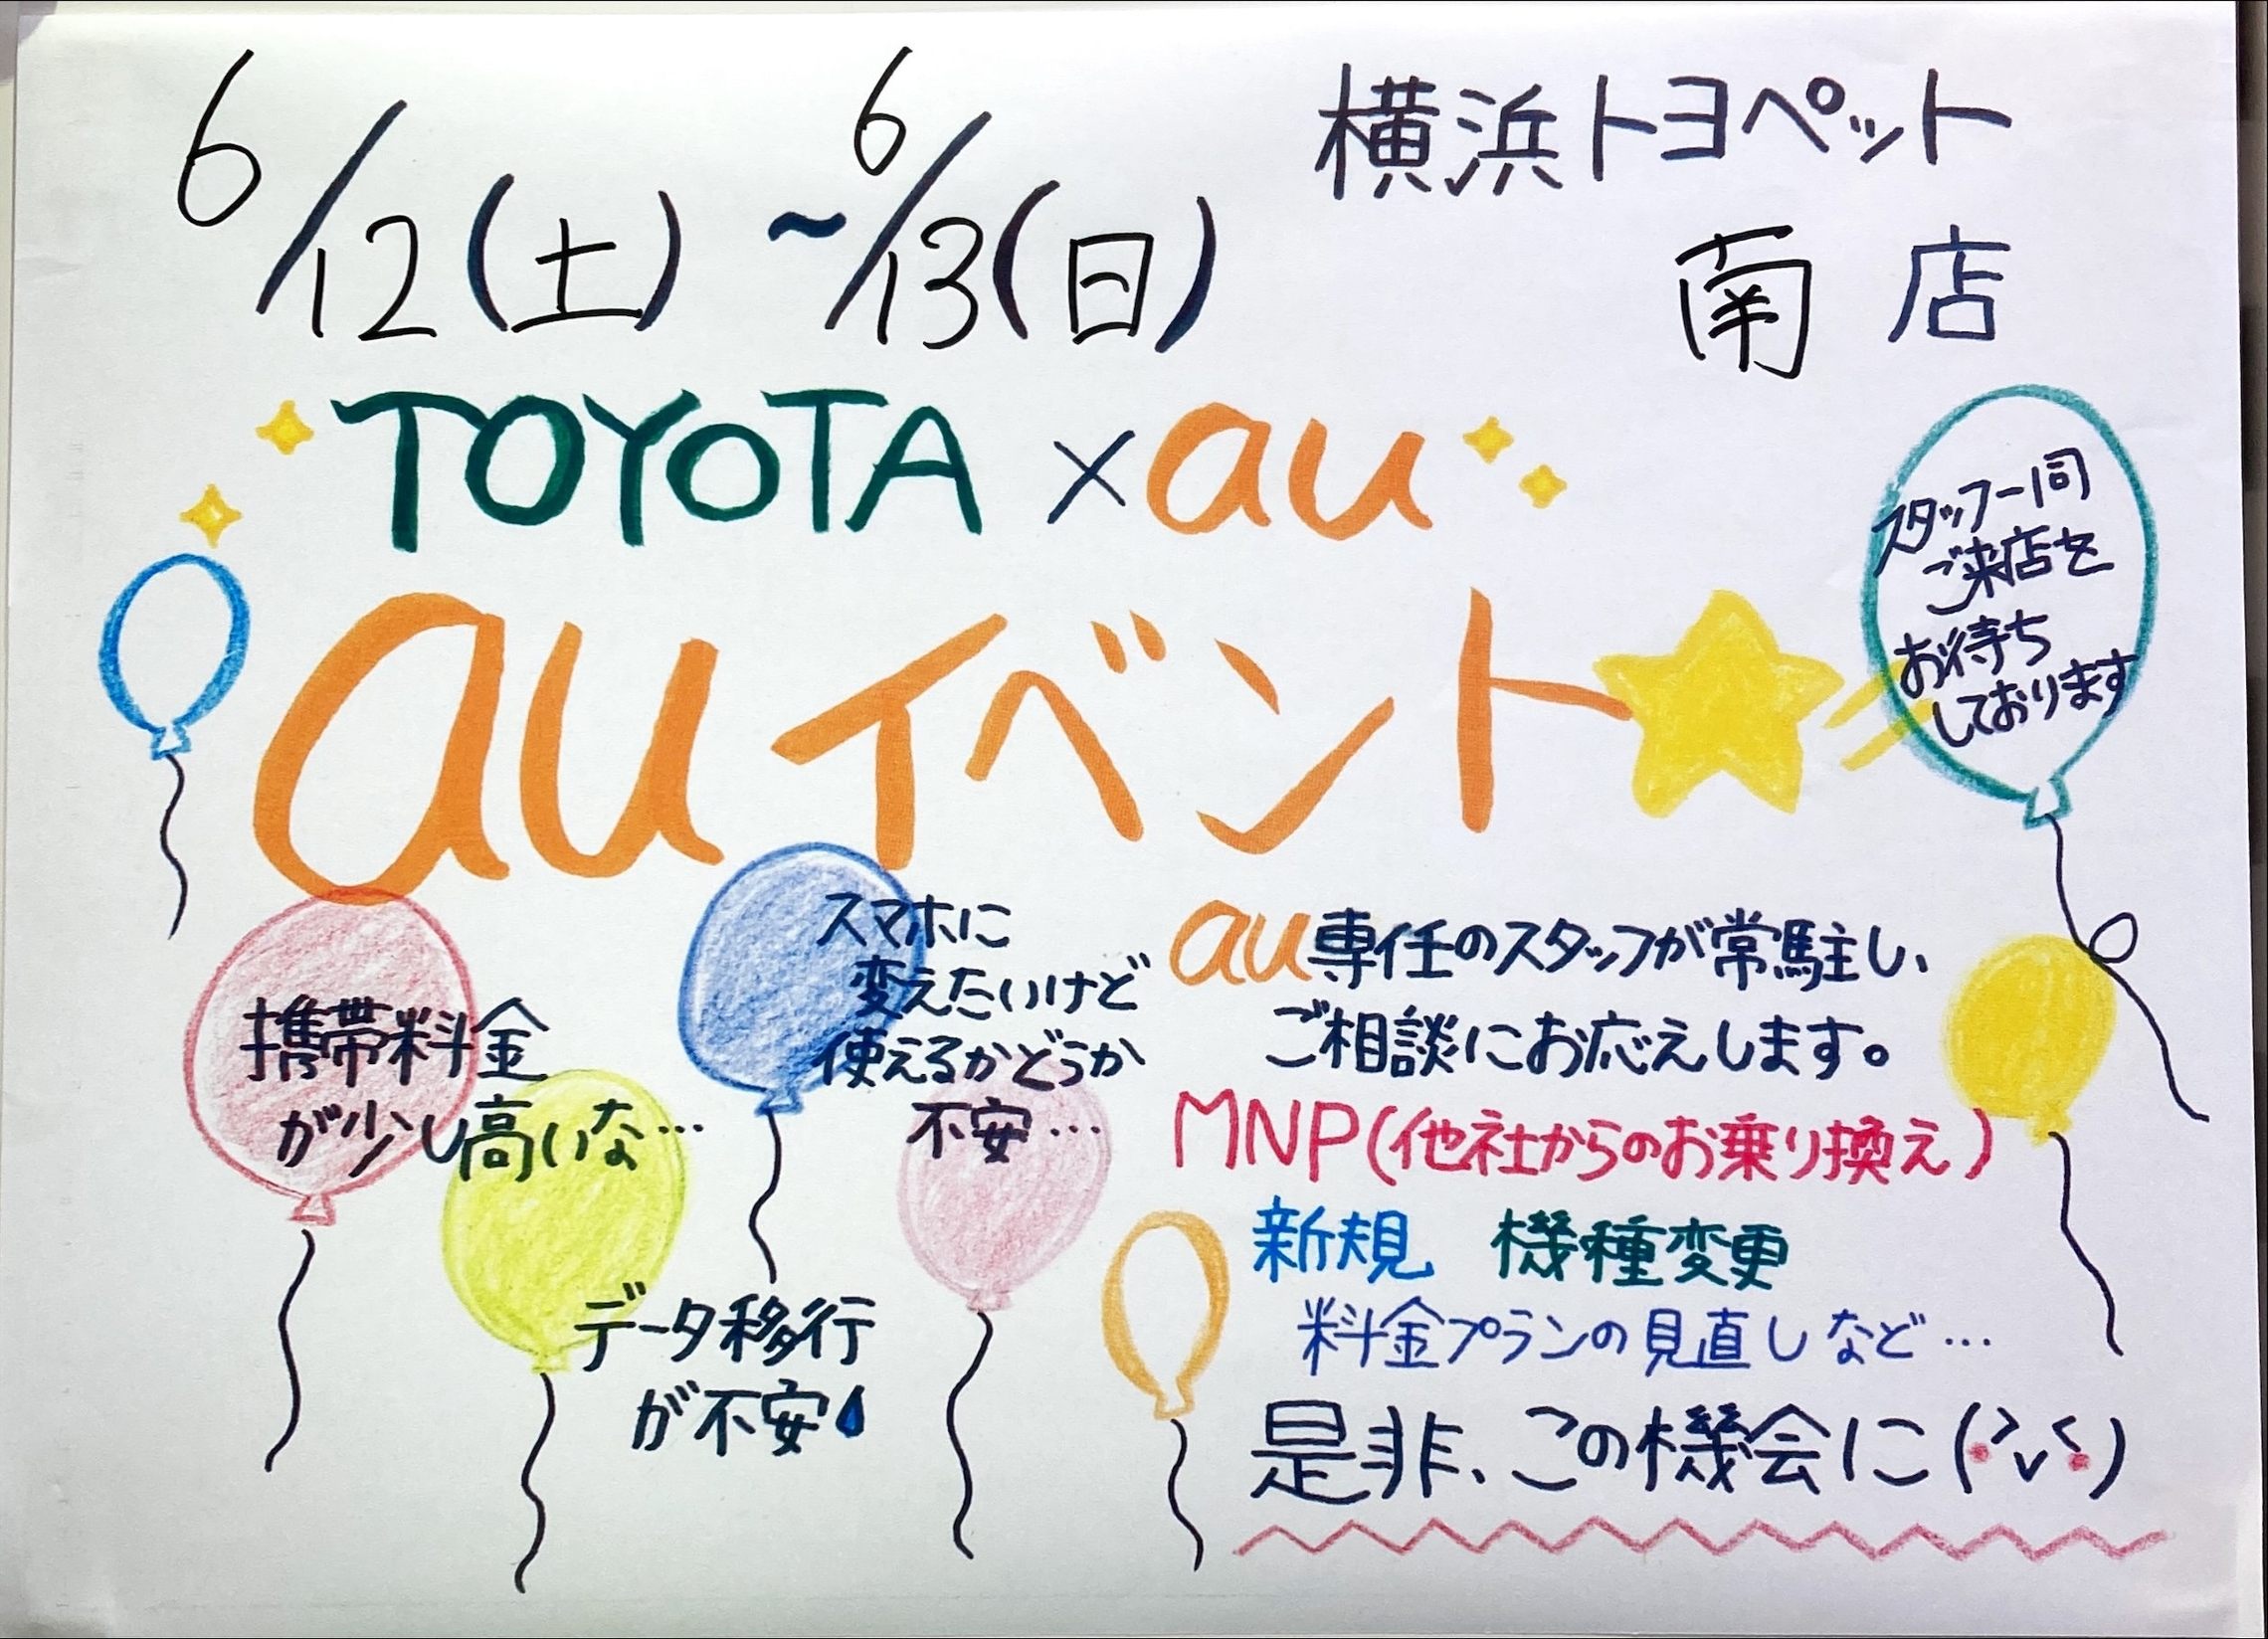 6/12(土)~6/13(日)
横浜トヨペット
南店
TOYOTA×au
auイベント
スタッフ一同
ご来店を
お待ち
しております
携帯料金
が少し高いな…
スマホに
変えたいけど
使えるかどうか
不安…
データ移行
が不安
au専任のスタッフが常駐し、
ご相談にお応えします。
MNP(他社からのお乗り換え)
新規 機種変更
料金プランの見直しなど…
是非、この機会に